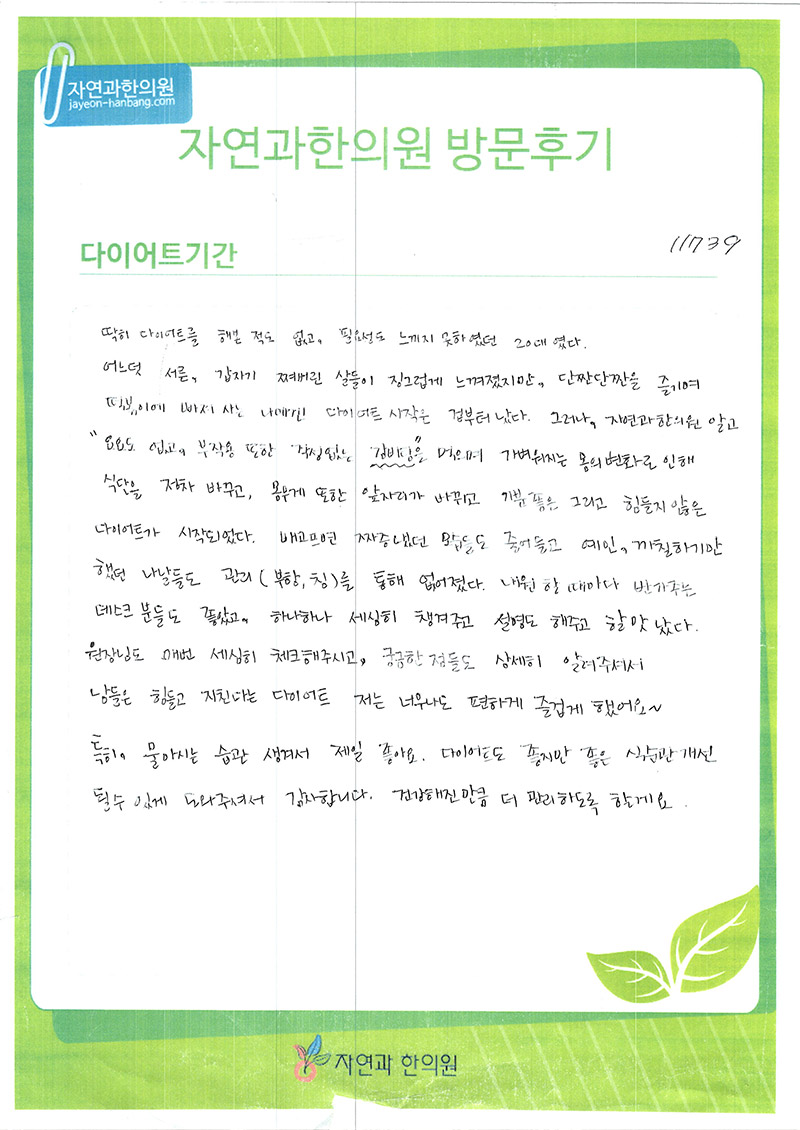 자연과한의원
jayeon-hanbang.com
자연과한의원 방문후기
다이어트기간
11739
딱히 다이어트를 해본 적도 없고, 필요성도 느끼지 못하였던 20대였다.
어느덧 서른, 갑자기 쪄버린 살들이 징그럽게 느껴졌지만, 단짠단짠을 즐기며
떡볶이에 빠져 사는 나에게 다이어트 시작은 겁부터 났다. 그러나, 자연과한의원 알고
"요요도 없고, 부작용 또한 걱정없는 감비탕"을 먹으며 가벼워지는 몸의 변화로 인해
식단을 점차 바꾸고, 몸무게 또한 앞자리가 바뀌고 기분 좋은 그리고 힘들지 않은
다이어트가 시작되었다. 배고프면 짜증냈던 모습들도 줄어들고 예민, 까칠하기만
했던 나날들도 관리(부항, 침)를 통해 없어졌다. 내원 할 때마다 반겨주는
데스크 분들도 좋았고, 하나하나 세심히 챙겨주고 설명도 해주고 할맛 났다.
원장님도 매번 세심히 체크해주시고, 궁금한 점들도 상세히 알려주셔서
남들은 힘들고 지친다는 다이어트 저는 너무나도 편하게 즐겁게 했어요~
특히, 물마시는 습관 생겨서 제일 좋아요. 다이어트도 좋지만 좋은 식습관 개선
될수 있게 도와주셔서 감사합니다. 건강해진만큼 더 관리하도록 할게요.
자연과 한의원